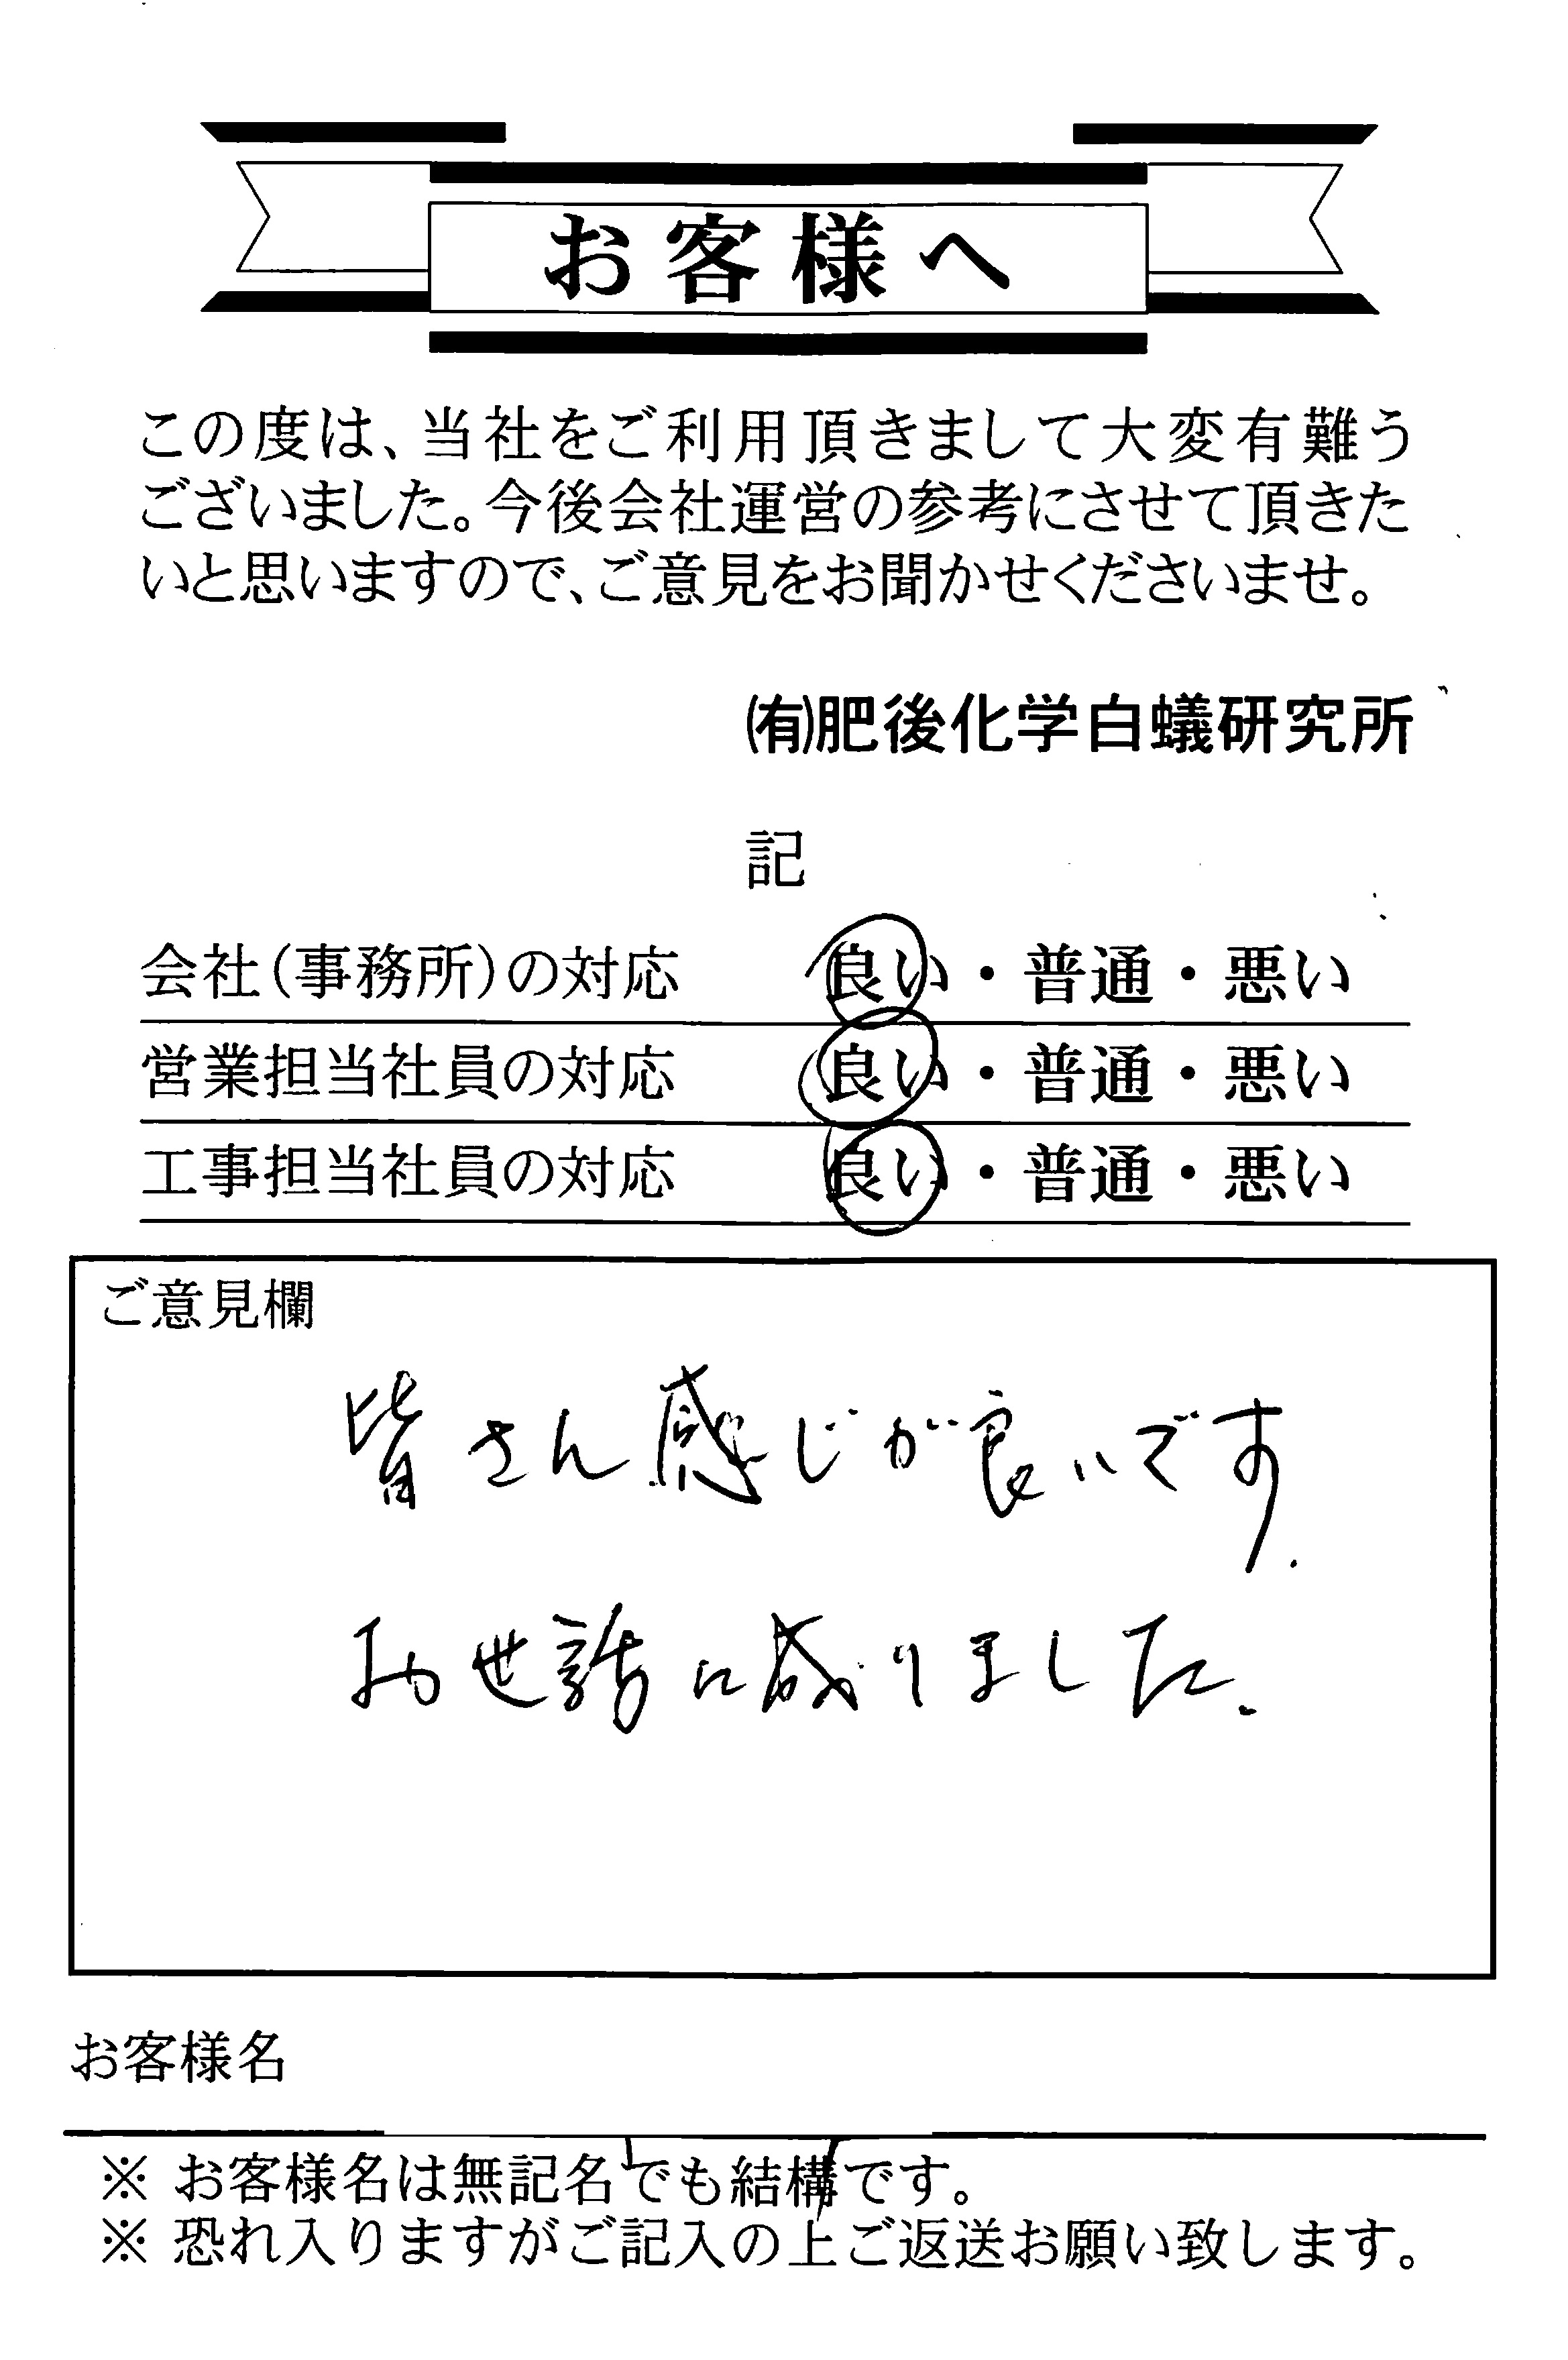 お客様へ
この度は、当社をご利用頂きまして大変有難う
ございました。今後会社運営の参考にさせて頂きた
いと思いますので、ご意見をお聞かせくださいませ。
㈲肥後化学白蟻研究所
記
会社(事務所)の対応 良い・普通・悪い
営業担当社員の対応 良い・普通・悪い
工事担当社員の対応 良い・普通・悪い
ご意見欄
皆さん感じが良いです.
お世話に成りました.
お客様名
※ お客様名は無記名でも結構です。
※ 恐れ入りますがご記入の上ご返送お願い致します。